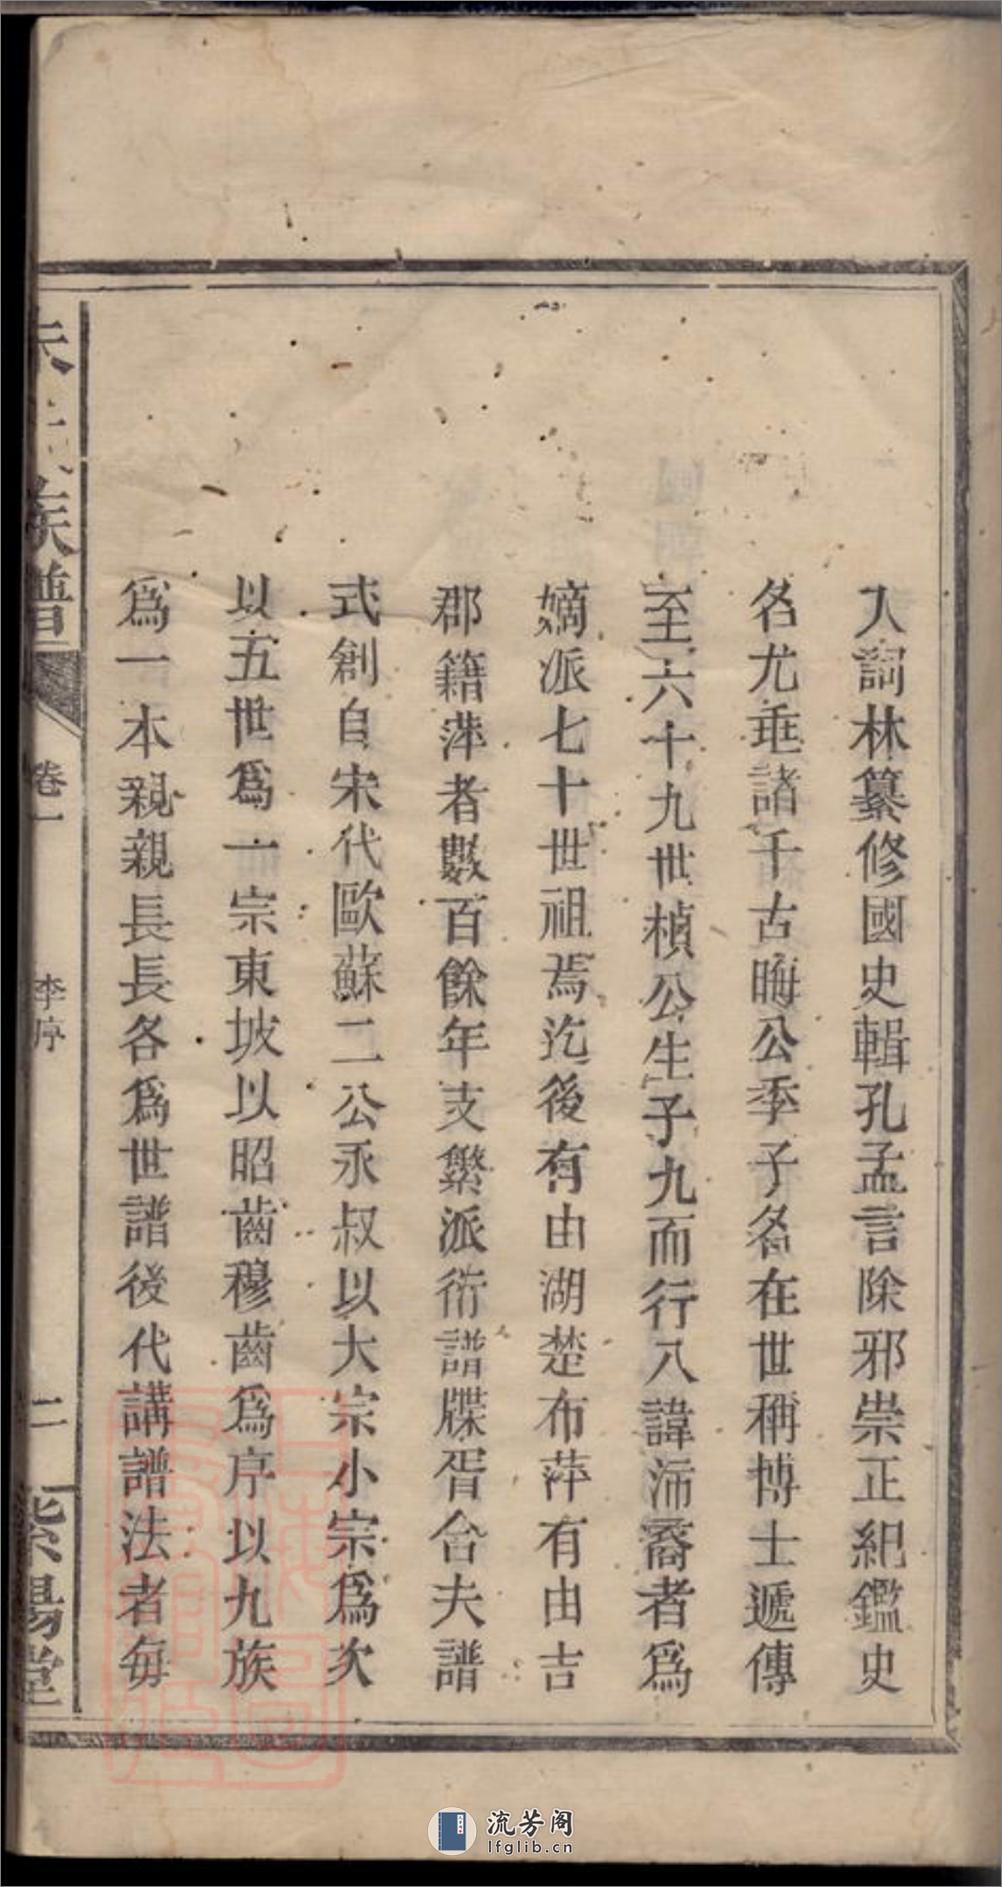 入詞林纂修國史輯孔孟言除邪崇正紀鑑史
名尤垂諸千古晦公季子名在世稱博士遞傳
至六十九世楨公生子九而行八諱沛裔者爲
嫡派七十世祖焉迄後有由湖楚布萍有由吉
郡籍萍者數百餘年支繁派衍譜牒胥合夫譜
式創自宋代歐蘇二公永叔以大宗小宗爲次
以五世爲一宗東坡以昭齒穆齒爲序以九族
爲一本親親長長各爲世譜後代講譜法者每
朱氏族譜
卷一
李序
二
紫陽堂
流芳阁
lfglib.cn